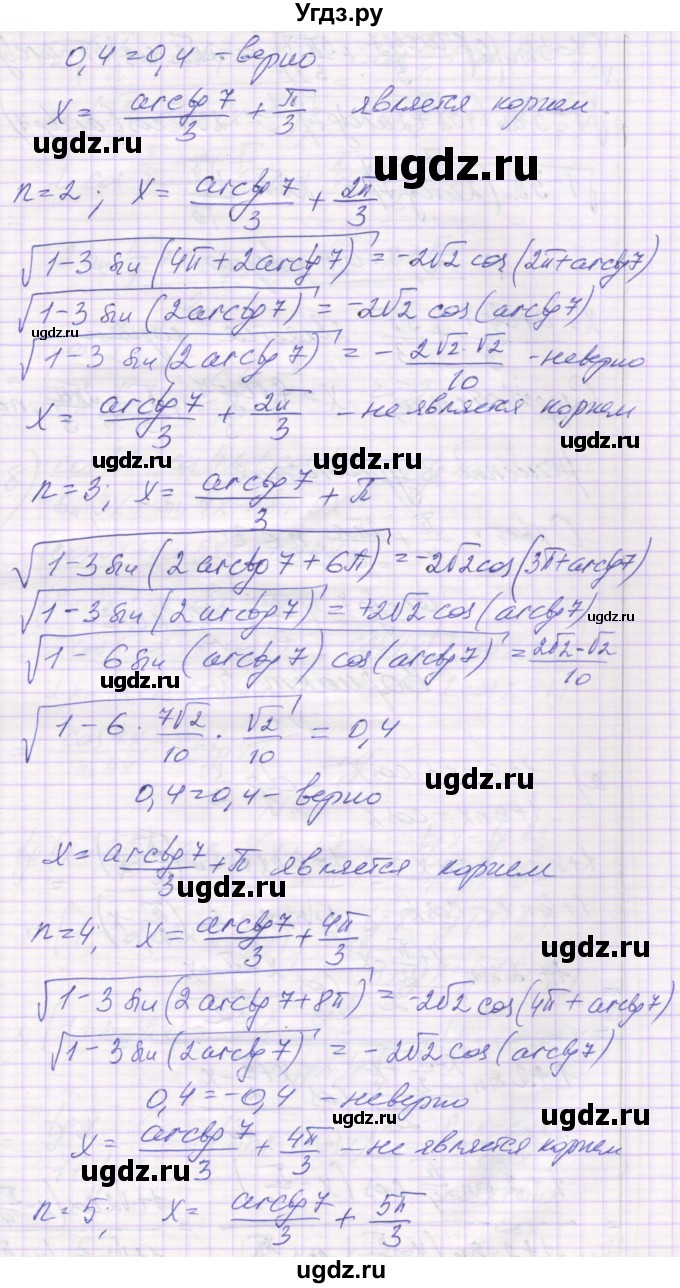 Угдз.ру
0,4 = 0,4 - верно
x = arctg 7/3 + π/3 является корнем.
ugdz.ru ugdz.ru
n=2; x = arctg 7/3 + 2π/3
√(1-3 sin (4π + 2arctg 7)) = -2√2 cos (2π + arctg 7)
√(1-3 sin (2arctg 7)) = -2√2 cos (arctg 7)
ugdz.ru
√(1-3 sin (2arctg 7)) = - 2√2·√2/10 - неверно
x = arctg 7/3 + 2π/3 - не является корнем
ugdz.ru
ugdz.ru ugdz.ru
n=3; x = arctg 7/3 + π
ugdz.ru
√(1-3 sin (2arctg 7 + 6π)) = -2√2 cos (3π + arctg 7)
√(1-3 sin (2arctg 7)) = +2√2 cos (arctg 7)
ugdz.ru
√(1 - 6 sin (arctg 7) cos (arctg 7)) = 2√2·√2/10
ugdz.ru
√(1 - 6 · 7√2/10 · √2/10) = 0,4
ugdz.ru
0,4 = 0,4 - верно
x = arctg 7/3 + π является корнем
ugdz.ru
n=4; x = arctg 7/3 + 4π/3
ugdz.ru
√(1-3 sin (2arctg 7 + 8π)) = -2√2 cos (4π + arctg 7)
√(1-3 sin (2arctg 7)) = -2√2 cos (arctg 7)
0,4 = -0,4 - неверно
ugdz.ru ugdz.ru
x = arctg 7/3 + 4π/3 - не является корнем
ugdz.ru
n=5; x = arctg 7/3 + 5π/3
ugdz.ru